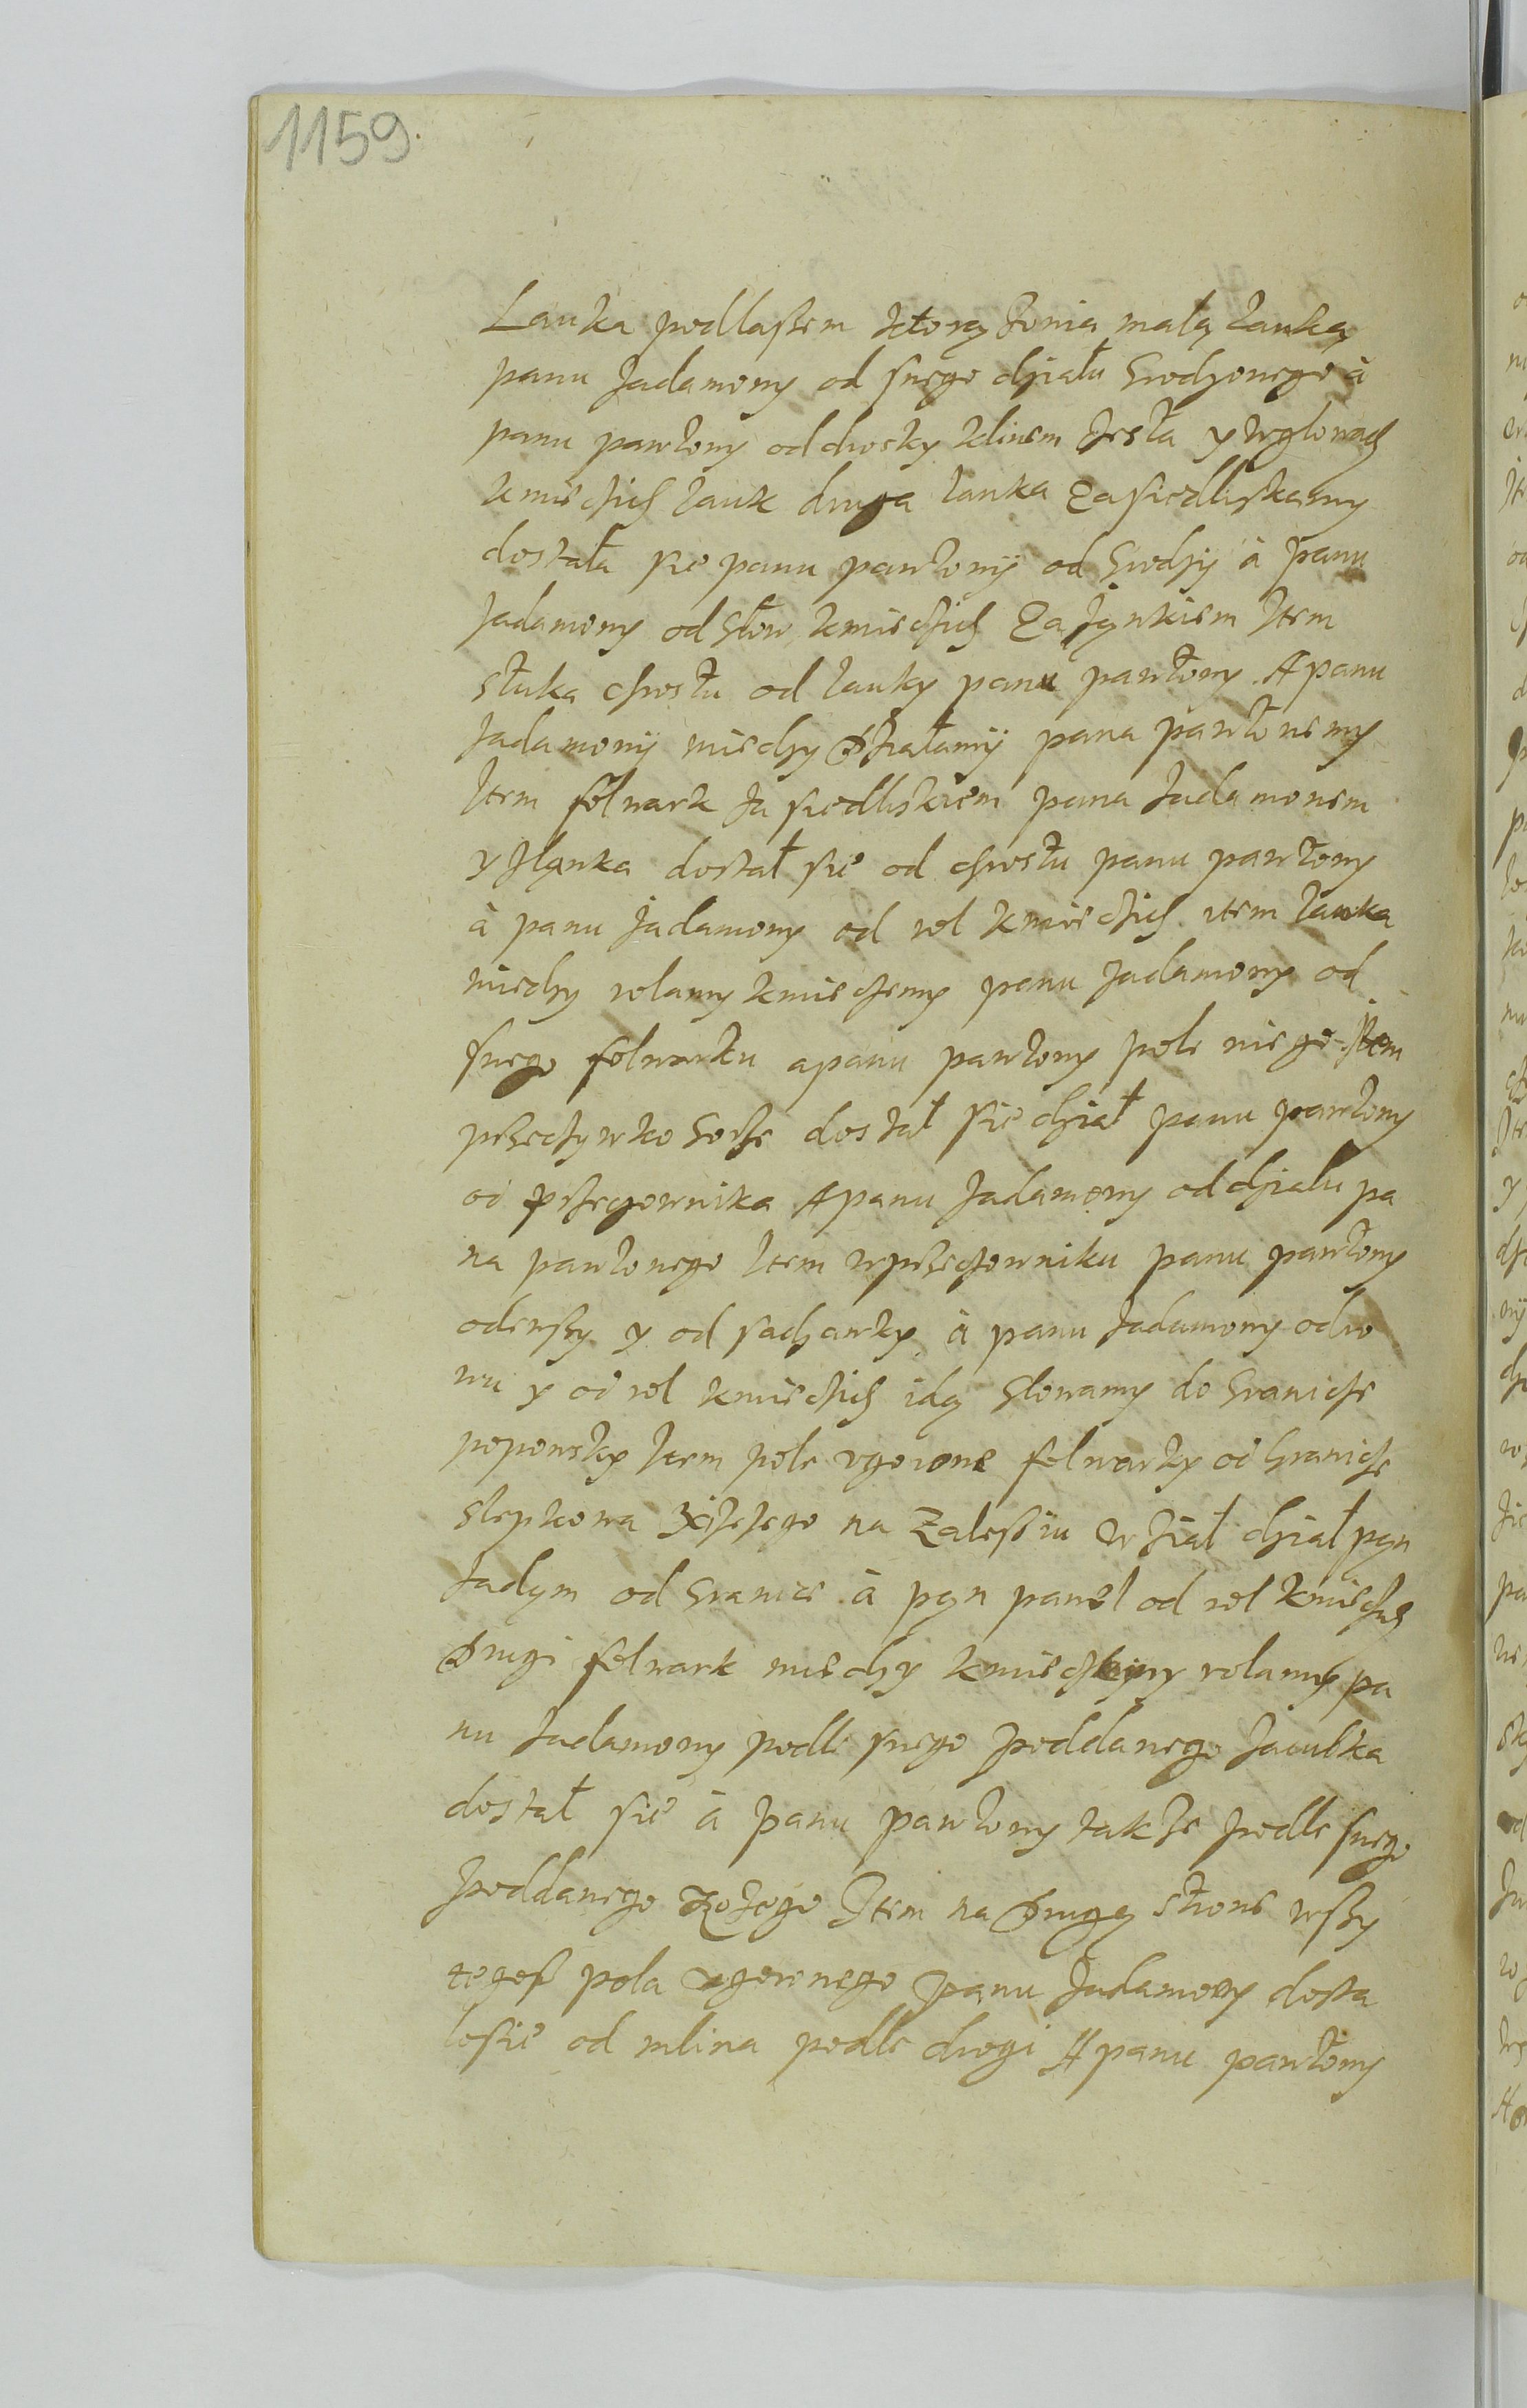 1159
Lauka podlassem ktorą mala lauką
panu Jadamowy od swego działu grodzonego à
panu pawlowy od drosky klinem y wglowach
kmieczich lauk druga lauka Za siedliskamy
dostała sie panu pawlowy od à panu
Jadamowy od kmieczich Item
sztuka chrostu od lauky panu pawlowy A panu
Jadamowÿ miedzy działamÿ pana pawlowemy
Item folwark Za siedliskiem pana Jadamowem
y dostał sie od chrostu panu pawlowy
à panu Jadamowy od rol kmieczich item lauka
miedzy rolamy kmieczemy panu Jadamowy od
swego folwarku a panu pawlowy pole niego Item
przeczywko dostał sie dział panu pawlowy
od A panu Jadamowy od działu pa
na pawlowego Item panu pawlowy
odewssy y od sadzawky à panu Jadamowy odro
wu y od rol kmieczich idą glowamy do granicze
popowsky Item pole ugorone folwarky od granicze
slepkowa na Zalesiu wział dział pąn
Jadąm od granice à pąn pawel od rol kmieczich
drugi folwark miedzy rolamy pa
nu Jadamowy podle swego poddanego
dostał sie à panu pawlowy także podle swego
poddanego Item na drugą strone wssy
tegoss pola ugoronego panu Jadamowy dosta
lo sie od mlina podle drogi A panu pawlowy